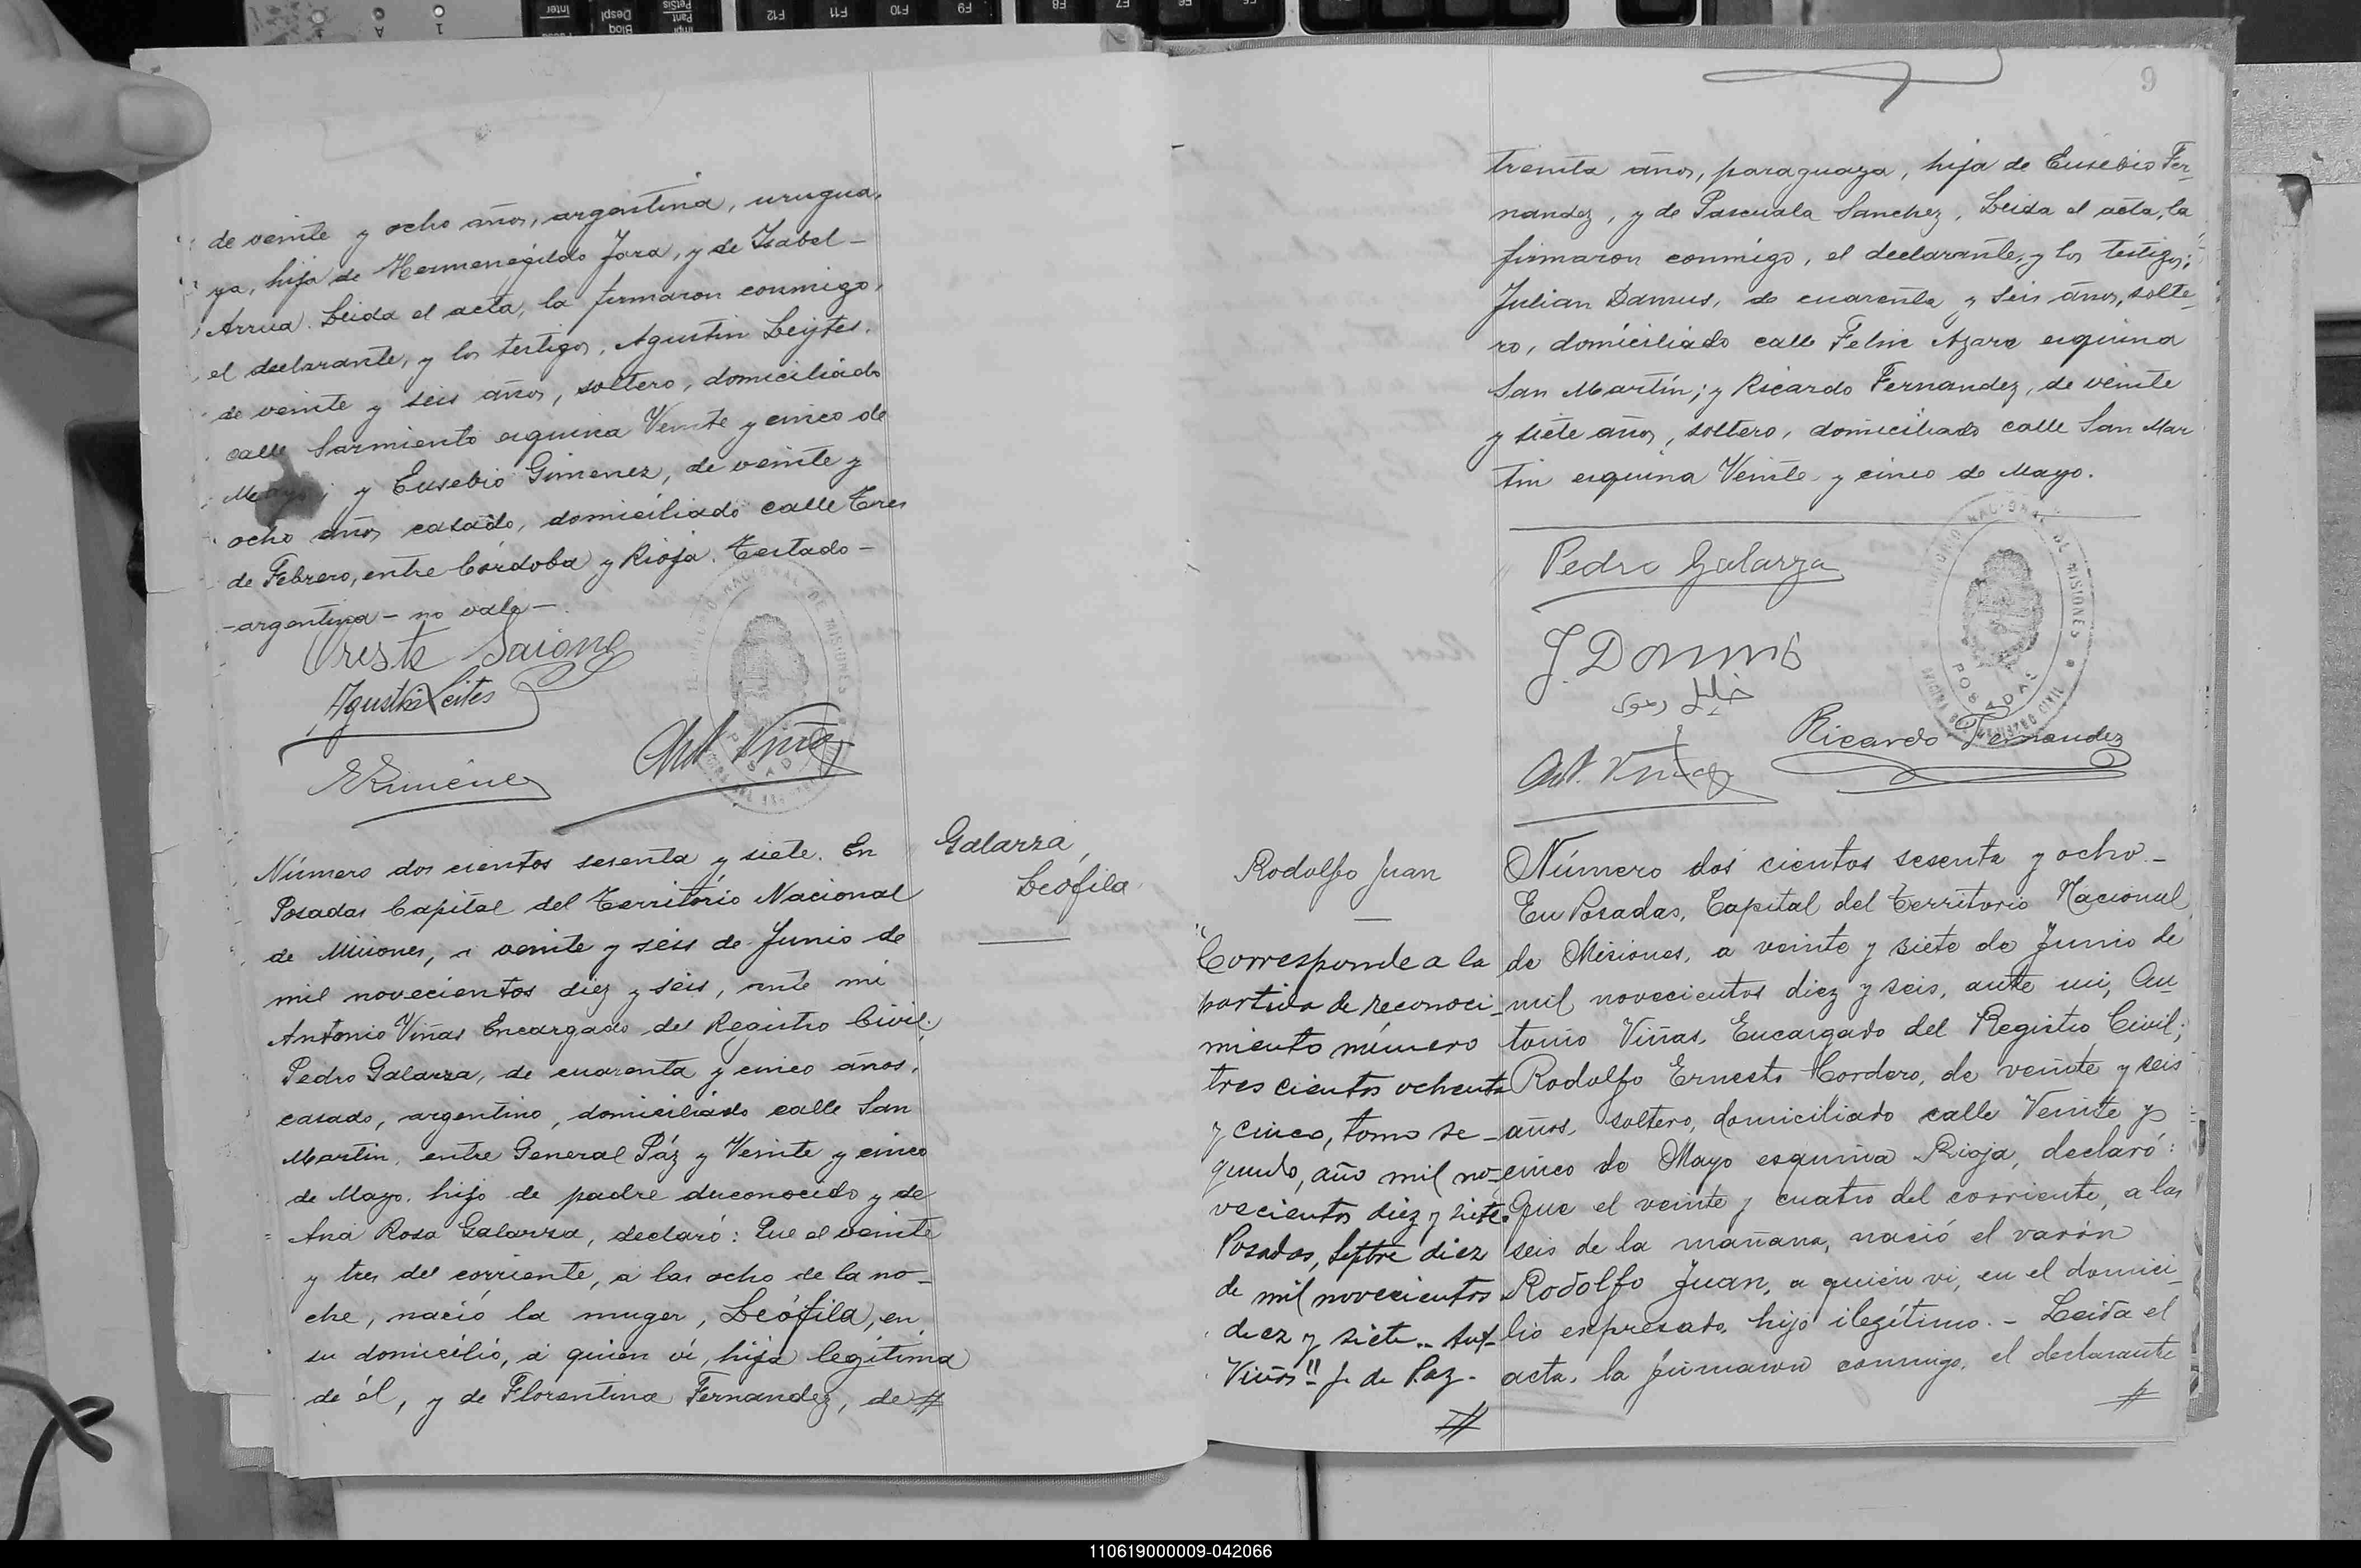 de veinte y ocho años, argentina, urugua-
ya, hija de Hermenegildo Jara, y de Isabel -
Arrua. Leida el acta, la firmaron conmigo,
el declarante, y los testigos, Agustin Leytes,
de veinte y seis años, soltero, domiciliado
calle Sarmiento esquina Veinte y cinco de
Mayo; y Eusebio Gimenez, de veinte y
ocho años casado, domiciliado calle Tres
de Febrero, entre Córdoba y Rioja. Testado -
- argentina - no vale -
Agustin Leites
EXimenez
Ant Viñas
Número dos cientos sesenta y siete. En
Posadas Capital del Territorio Nacional
de Misiones, a veinte y seis de Junio de
mil novecientos diez y seis, ante mi
Antonio Viñas Encargado del Registro Civil;
Pedro Galarza, de cuarenta y cinco años,
casado, argentino, domiciliado calle San
Martin, entre General Páz y Veinte y cinco
de Mayo, hijo de padre desconocido y de
Ana Rosa Galarza, declaró: Que el veinte
y tres del corriente, a las ocho de la no-
che, nació la muger, Leófila, en
su domicilio, á quien ví, hija legítima
de él, y de Florentina Fernandez, de #
Galarza,
Leófila
9
treinta años, paraguaya, hija de Eusebio Fer-
nandez, y de Pascuala Sanchez. Leida el acta, la
firmaron conmigo, el declarante, y los testigos;
Julian Damus, de cuarenta y seis años, solte-
ro, domiciliado calle Felix Azara esquina
San Martín; y Ricardo Fernandez, de veinte
y siete años, soltero, domiciliado calle San Mar
tin esquina Veinte y cinco de Mayo.
Pedro Galarza
TERRITORIO NACIONAL DE MISIONES
POSADAS
J. Domus
Ricardo Fernandez
Ant. Viñas
Rodolfo Juan
"Corresponde a la
partida de reconoci-
miento número
tres cientos ochenta
y cinco, tomo se-
gundo, año mil no-
vecientos diez y siete.
Posadas, Septbre diez
de mil novecientos
diez y siete.. Ant
Viñas" J. de Paz.
#
Número dos cientos sesenta y ocho -
En Posadas, Capital del Territorio Nacional
de Misiones, a veinte y siete de Junio de
mil novecientos diez y seis, ante mi, An
tonio Viñas, Encargado del Registro Civil;
Rodolfo Ernesto Cordero, de veinte y seis
años, soltero, domiciliado calle Veinte y
cinco de Mayo esquina Rioja, declaró:
Que el veinte y cuatro del corriente, a las
seis de la mañana, nació el varón
Rodolfo Juan, a quién vi, en el domici-
lio expresado, hijo ilegítimo. - Leida el
acta, la firmaron conmigo, el declarante
#
110619000009-042066